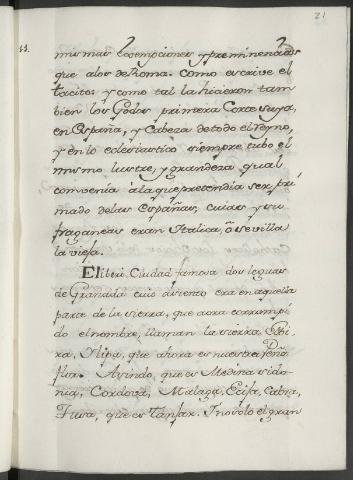 21
11.
mismas exempciones y preminencias
que alos de Roma. como escrive el
tacitos y como tal la hicieron tam
bien los Godos primera Corte suya,
en España, y Cabeza de todo el Reyno,
y en lo eclesiastico siempre tubo el
mismo lustre, y grandeza qual
convenia à la que pretendia ser pri
mado delas Españas, cuias y su
fraganeas eran Italica, ò sevilla
la vieja.
Eliberi Ciudad famosa dos leguas
de Granada cuio asiento era en aquella
parte de la sierra, que aora corrompi
do el nombre, llaman la sierra Elbi
ra, Ilipa, que ahora es nuestra Peña
flor. Asindo, que es Medina sido
nia, Cordova, Malaga, Ecija, Cabra,
Tuia, que es tanjar. Y no solo el gran